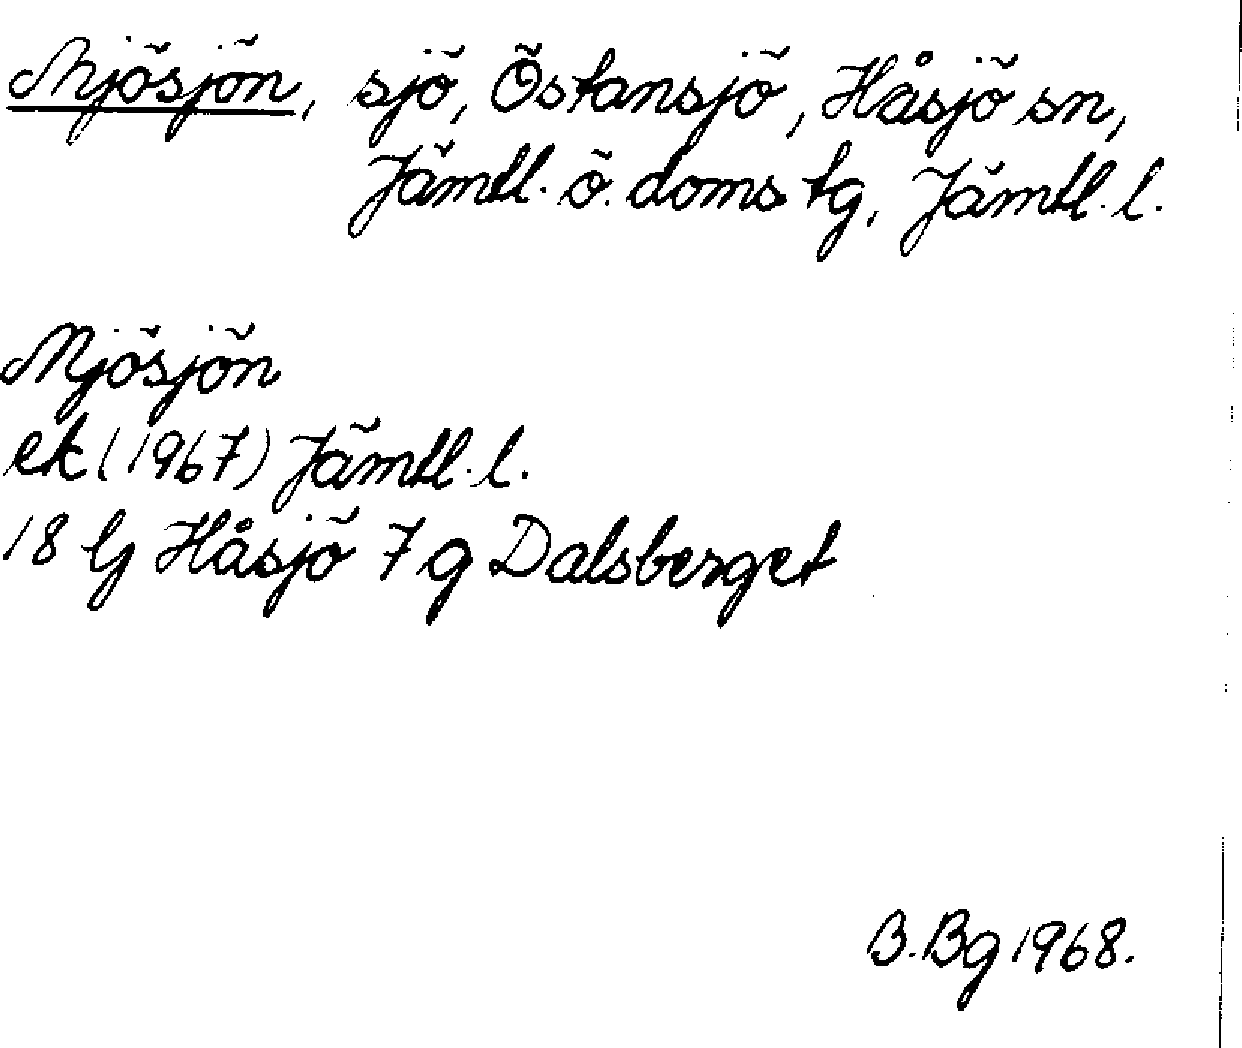 Mjösjön, sjö, Östansjö, Håsjö sn,
Jämtl. ö. doms tg, Jämtl. l.
Mjösjön
ek (1967) Jämtl. l.
18 G Håsjö 7 g Dalsberget
B. Bg 1968.